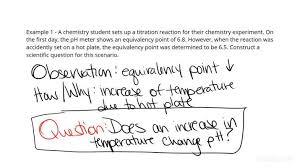 Example 1 - A chemistry student sets up a titration reaction for their chemistry experiment. On
the first day, the pH meter shows an equivalency point of 6.8. However, when the reaction was
accidently set on a hot plate, the equivalency point was determined to be 6.5. Construct a
scientific question for this scenario.
Observation: equivalency point ↓
How/Why: increase of temperature
due to hot plate
Question: Does an increase in
temperature change pH?